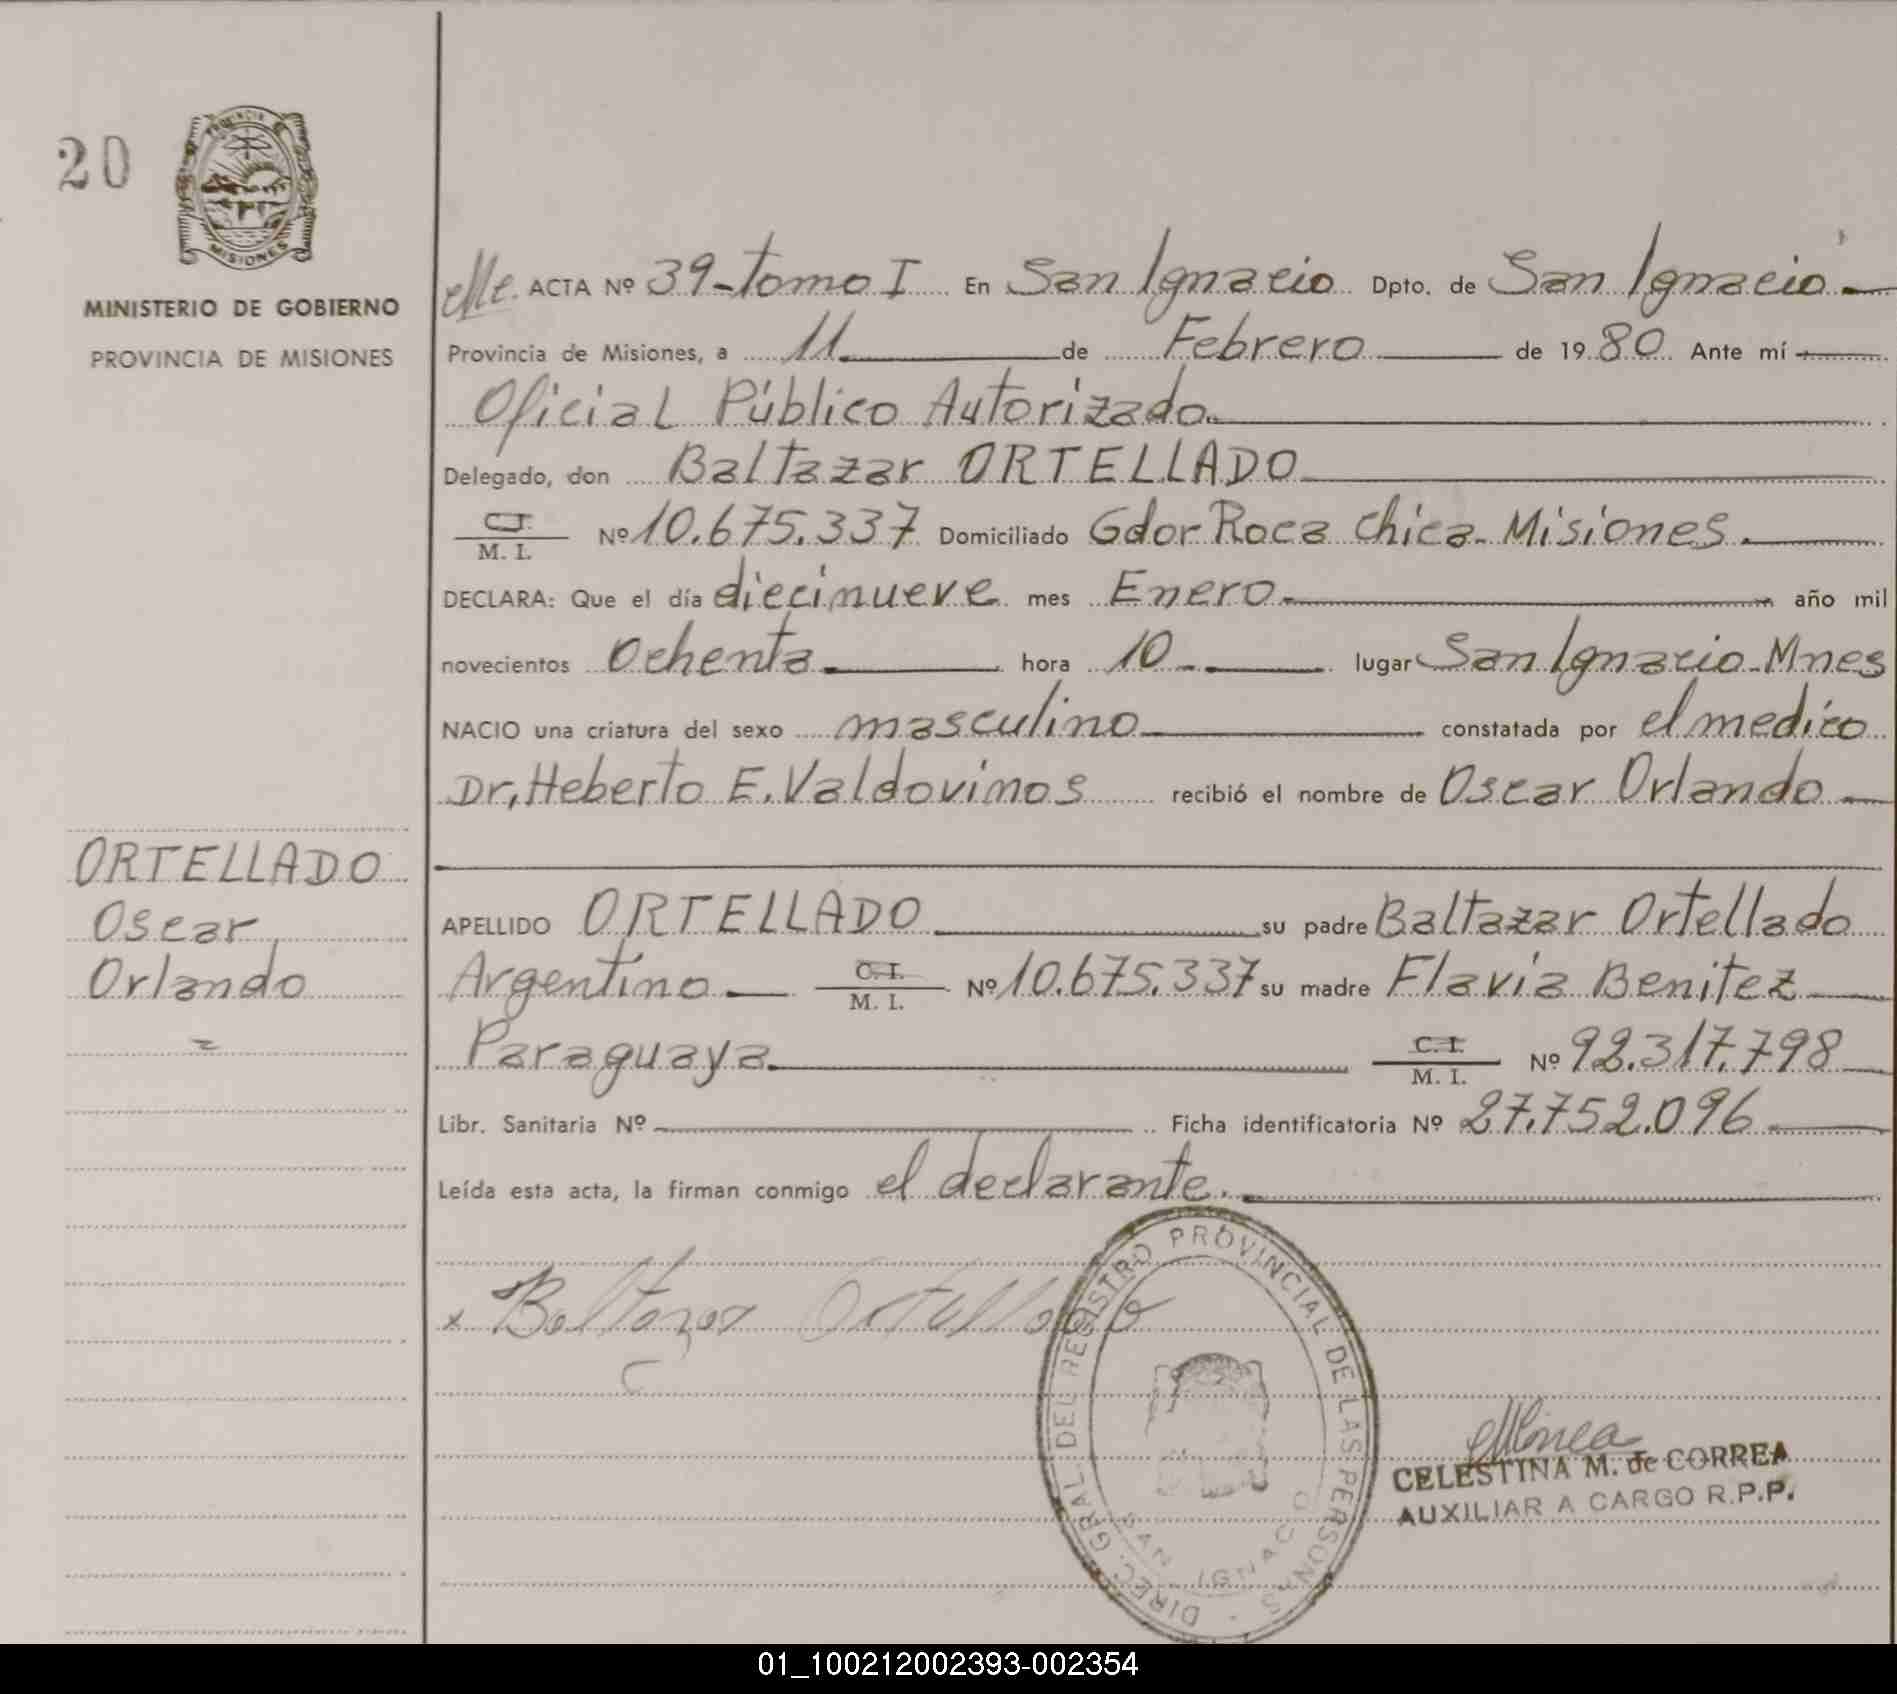 20
PROVINCIA DE
MISIONES
MINISTERIO DE GOBIERNO
PROVINCIA DE MISIONES
ORTELLADO
Oscar
Orlando
ACTA Nº 39-tomo I En San Ignacio Dpto. de San Ignacio
Provincia de Misiones, a 11 de Febrero de 1980 Ante mí
Oficial Público Autorizado
Delegado, don Baltazar ORTELLADO
C.I.
M. I. Nº 10.675.337 Domiciliado Gdor Roca Chica-Misiones.
DECLARA: Que el día diecinueve mes Enero año mil
novecientos Ochenta hora 10 lugar San Ignacio-Mnes
NACIO una criatura del sexo masculino constatada por el medico
Dr, Heberto E. Valdovinos recibió el nombre de Oscar Orlando
APELLIDO ORTELLADO su padre Baltazar Ortellado
Argentino C.I.
M. I. Nº 10.675.337 su madre Flavia Benitez
Paraguaya C. I.
M. I. Nº 92.317.798
Libr. Sanitaria Nº Ficha identificatoria Nº 27.752.096
Leída esta acta, la firman conmigo el declarante.
x Baltazar Ortellado
DIREC. GRAL. DEL REGISTRO PROVINCIAL DE LAS PERSONAS
SAN IGNACIO
CELESTINA M. de CORREA
AUXILIAR A CARGO R.P.P.
01_100212002393-002354